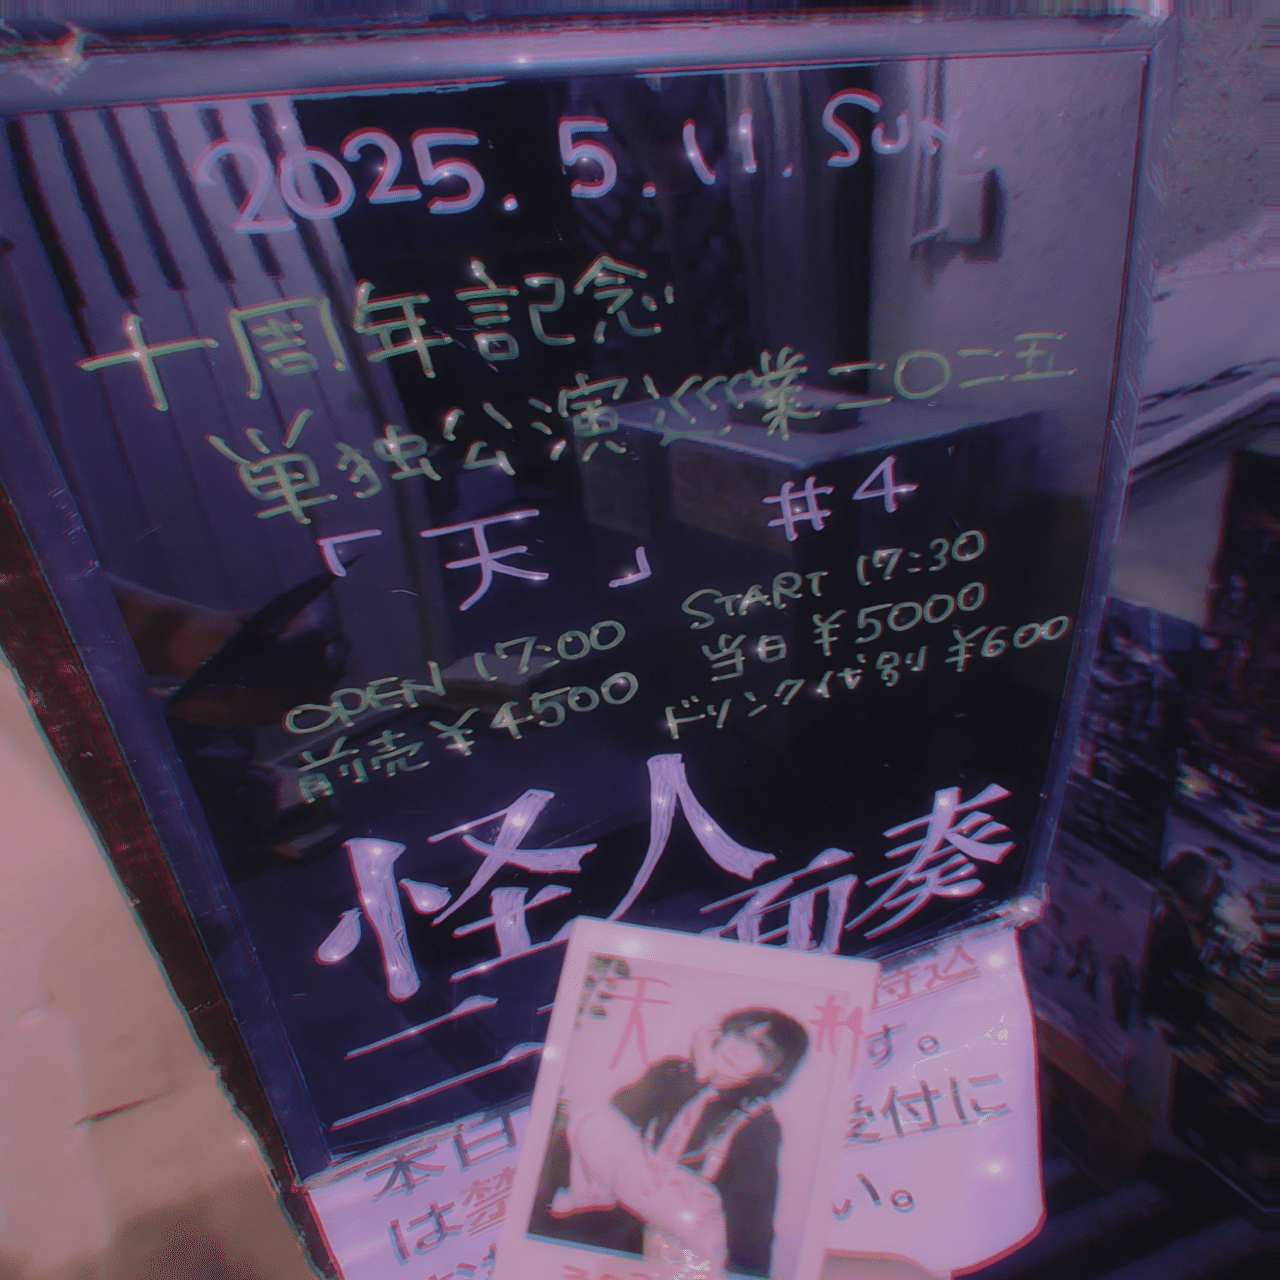 2025.5.11.Sun
十周年記念
単独公演巡業二〇二五
「天」 #4
OPEN 17:00 START 17:30
前売¥4500 当日¥5000
ドリンク代別¥600
怪人二十面奏
本日
付込
は
す。
受付に
い。
天